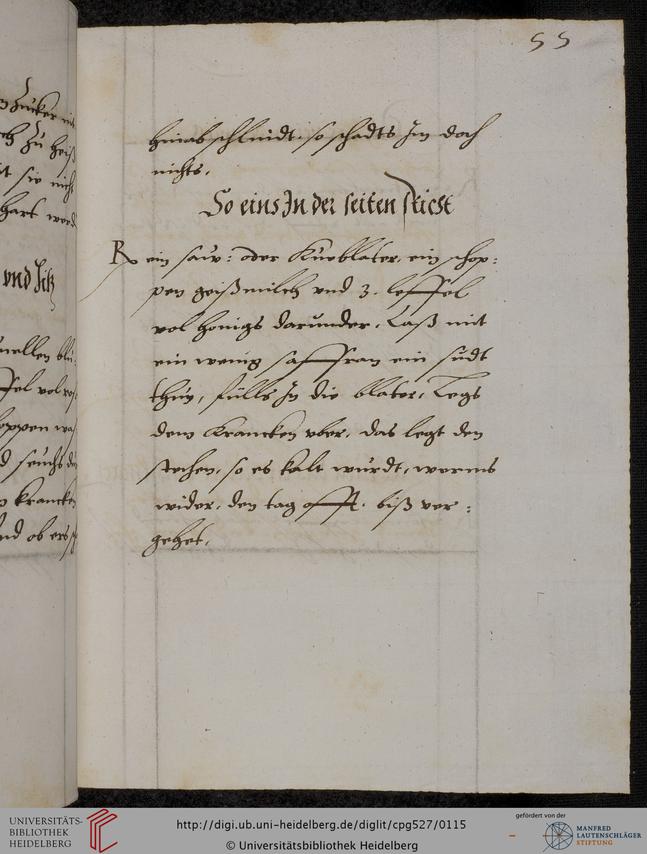 55
hinab schlindt, so schadts Jm doch
nichts.
So eins Jn der seiten sticht
Rx ein saw: oder Kueblater, ein schop-
pen geißmilch vnd 3. leffel
vol honigs darunder, Laß mit
ein wenig saffran ein sudt
thun, fülls Jn die blater, Legs
dem Krancken vber, das legt den
stechen, so es kalt wurdt, werms
wider, den tag offt. biß ver-
gehet.
zucker mit
zu heiß
sie nicht
hart werd
vnd
vol
krancken
UNIVERSITÄTS-
BIBLIOTHEK
HEIDELBERG
http://digi.ub.uni-heidelberg.de/diglit/cpg527/0115
© Universitätsbibliothek Heidelberg
gefördert von der
MANFRED
LAUTENSCHLÄGER
STIFTUNG